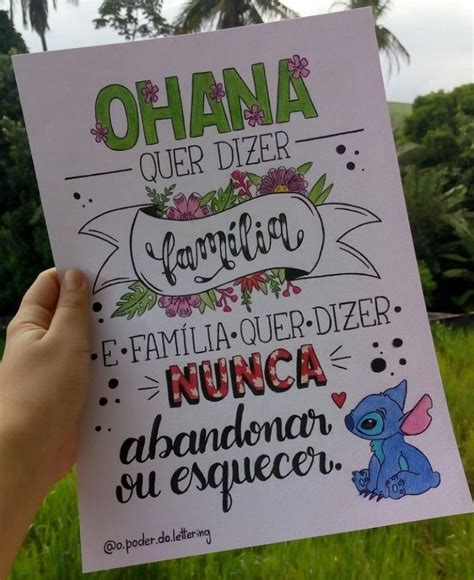 OHANA
QUER DIZER
família
E • FAMÍLIA • QUER • DIZER
NUNCA
abandonar
ou esquecer.
@o.poder.do.lettering